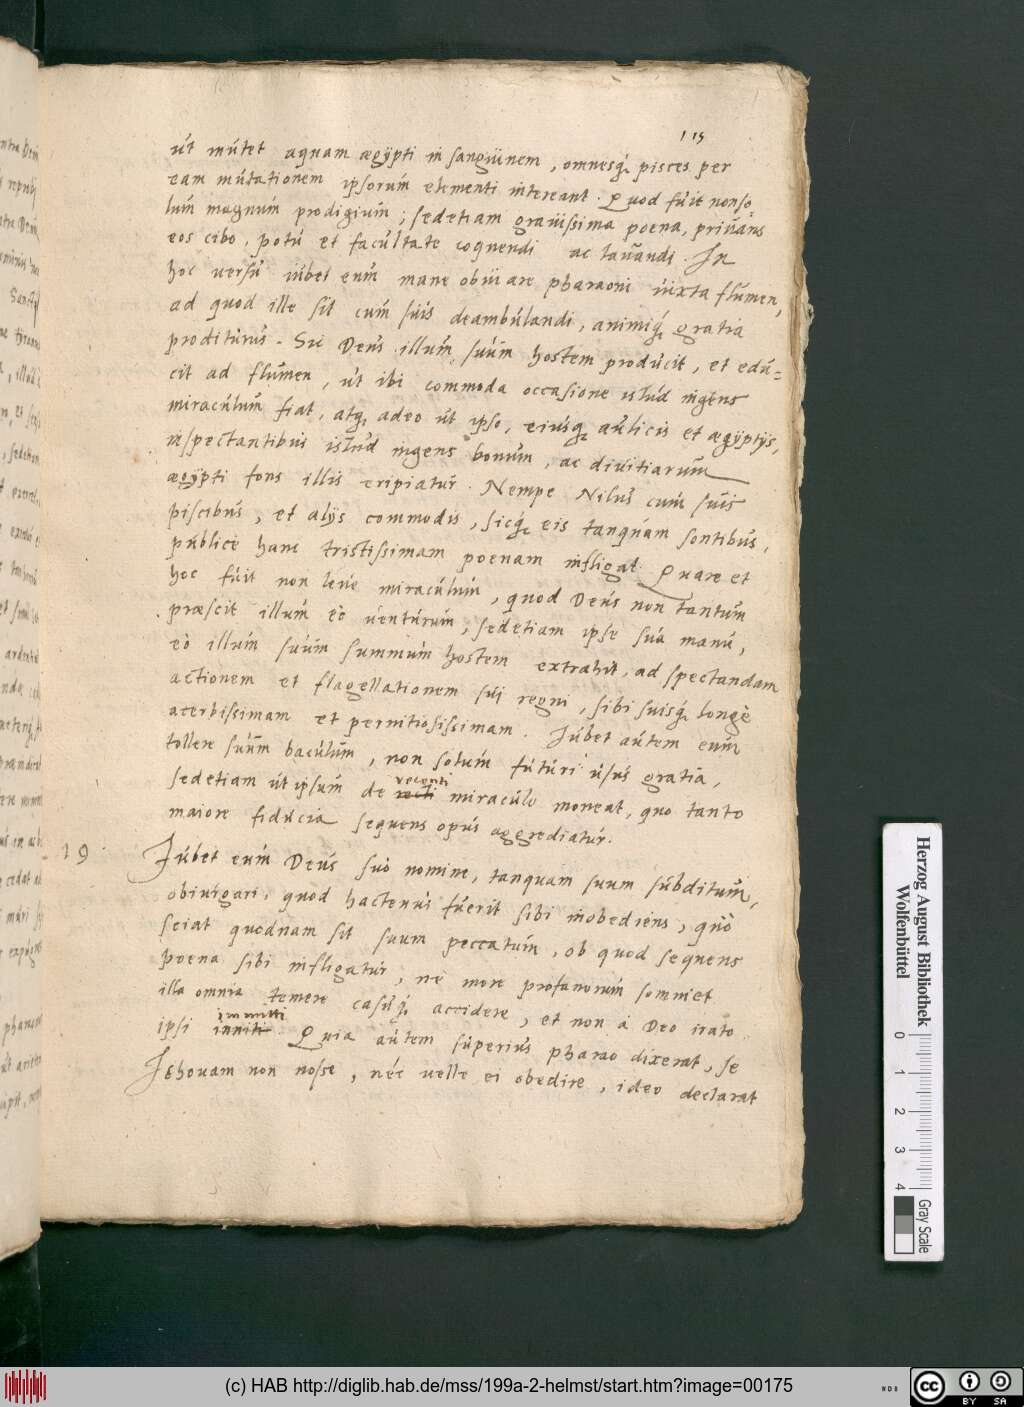 115
ut mutet aquam ægypti in sanguinem, omnesq; pisces per
eam mutationem ipsorum elementi intereant. Quod fuit non so
lum magnum prodigium; sed etiam gravissima poena, privans
eos cibo, potu et facultate coquendi ac lavandi. In
hoc versu iubet eum mane obviare pharaoni iuxta flumen,
ad quod ille sit cum suis deambulandi, animiq; gratia
proditurus. Sic Deus illum suum hostem producit, et edu=
cit ad flumen, ut ibi commoda occasione istud ingens
miraculum fiat, atq; adeo ut ipso, eiusq; aulicis et ægyptijs,
inspectantibus istud ingens bonum, ac divitiarum
ægypti fons illis eripiatur. Nempe Nilus cum suis
piscibus, et alijs commodis, sicq; eis tanquam sontibus,
publice hanc tristissimam poenam infligat. Quare et
hoc fuit non leve miraculum, quod Deus non tantum
præscit illum eò venturum, sed etiam ipse sua manu,
eò illum suum summum hostem extrahit, ad spectandam
actionem et flagellationem sui regni, sibi suisq; longè
acerbissimam et pernitiosissimam. Iubet autem eum
tollere suum baculum, non solum futuri usus gratia,
recenti
sed etiam ut ipsum de recti miraculo moneat, quo tanto
maiore fiducia sequens opus aggrediatur.
19 Iubet eum Deus suo nomine, tanquam suum subditum,
obiurgari, quod hactenus fuerit sibi inobediens, quò
sciat quodnam sit suum peccatum, ob quod sequens
poena sibi infligatur, ne more profanorum somniet
illa omnia temere casuq; accidere, et non à Deo irato
immitti
ipsi inniti. Quia autem superius pharao dixerat, se
Iehovam non nosse, nec velle ei obedire, ideo declarat
Herzog August Bibliothek
Wolfenbüttel
0 1 2 3 4
Gray Scale
(c) HAB http://diglib.hab.de/mss/199a-2-helmst/start.htm?image=00175
cc BY SA